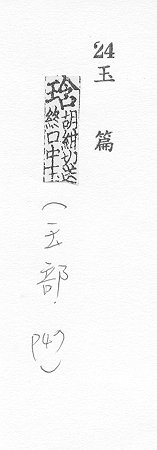 24
玉篇
琀胡紺切送
終口中玉
(玉部.
P47)